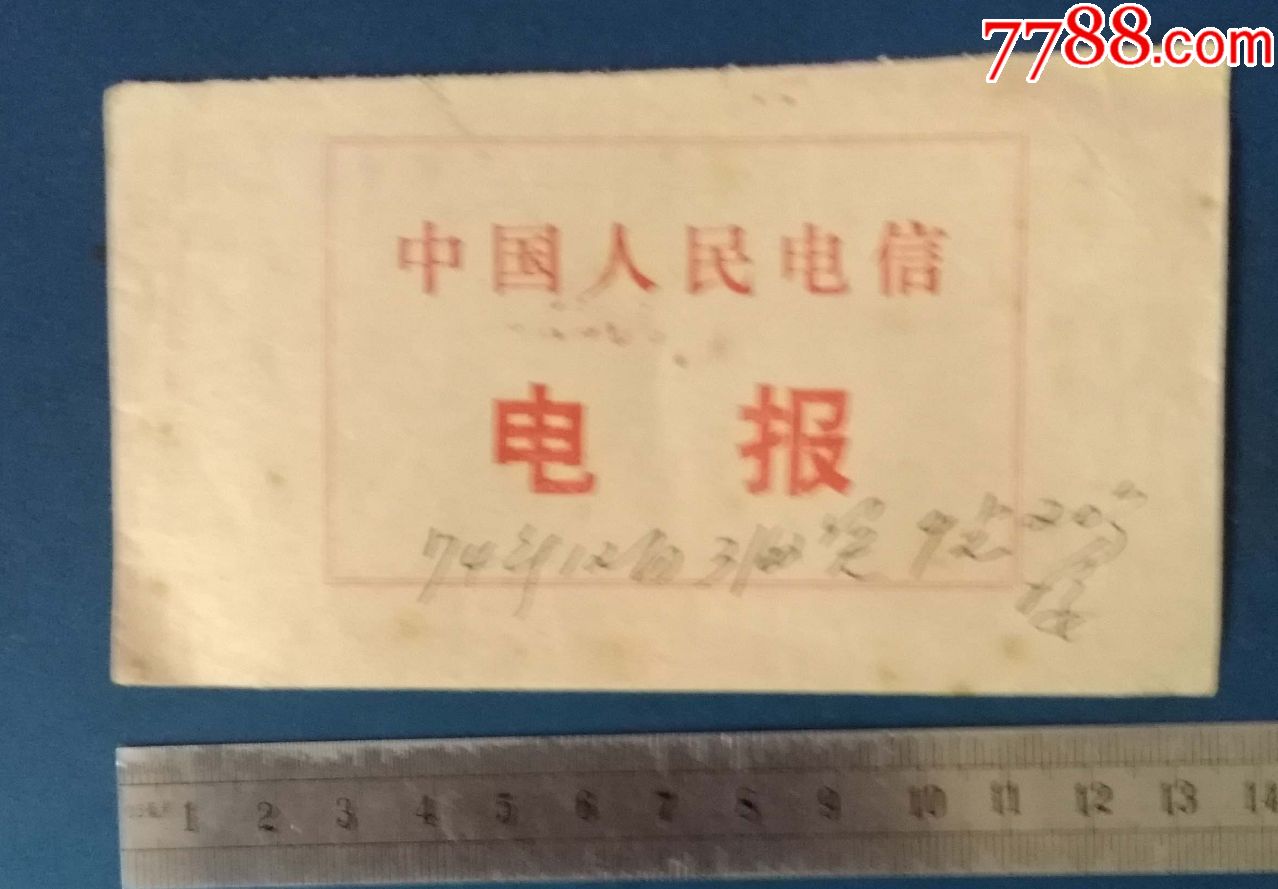 7788.com
中国人民电信
电报
74年12月3日
1 2 3 4 5 6 7 8 9 10 11 12 13 14